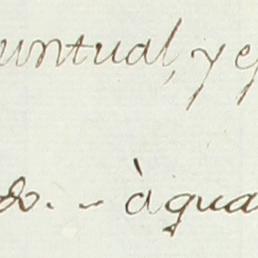 untual, y e
do. - à qua